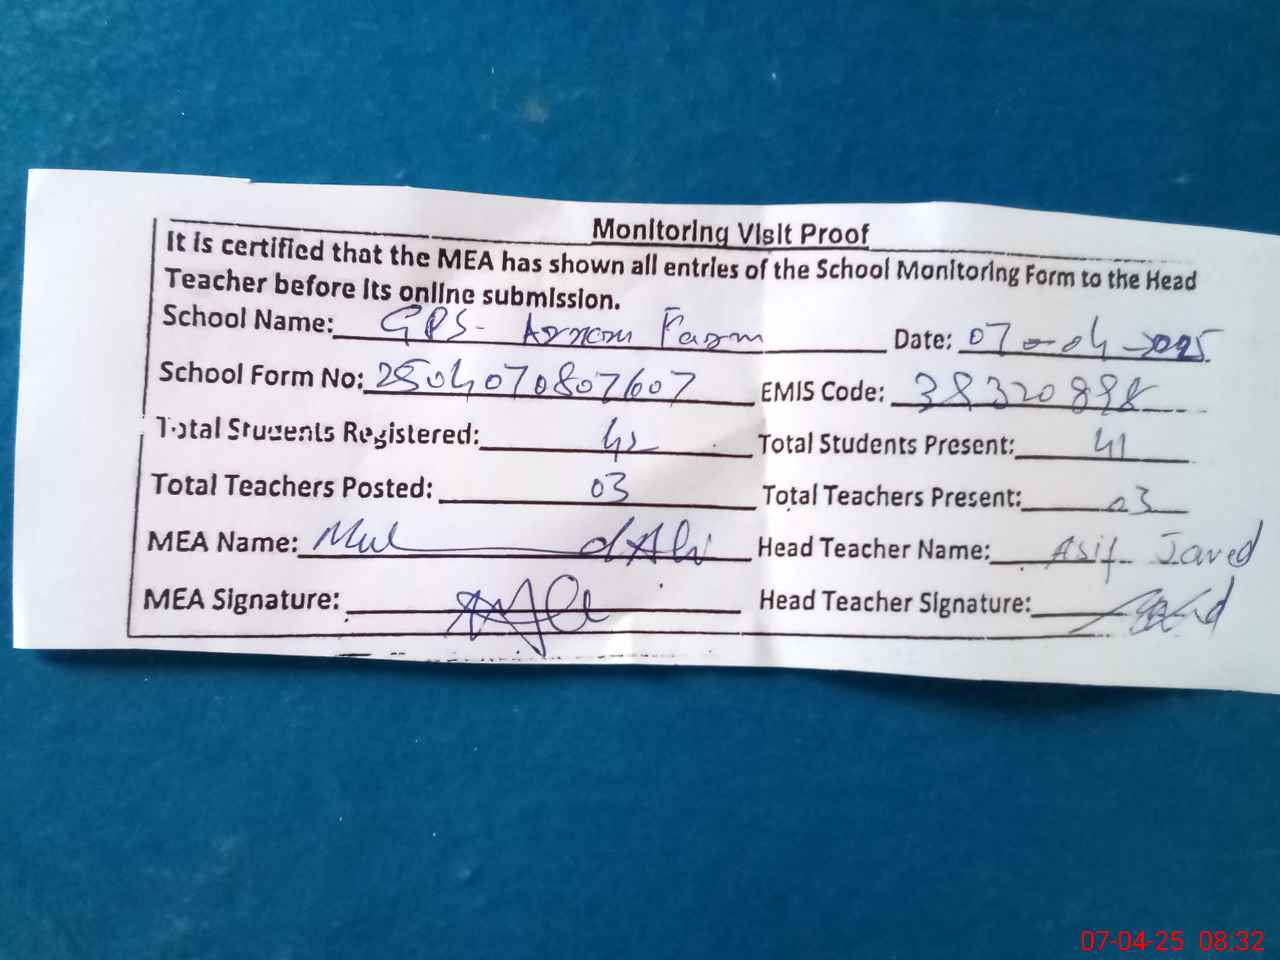 Monitoring Visit Proof
It is certified that the MEA has shown all entries of the School Monitoring Form to the Head
Teacher before its online submission.
School Name: GPS- Farm Date: 07-04-2025
School Form No: 2504070807607 EMIS Code: 38320898
Total Students Registered: 42 Total Students Present: 41
Total Teachers Posted: 03 Total Teachers Present: 03
MEA Name: Head Teacher Name: Asif Javed
MEA Signature: Head Teacher Signature:
07-04-25 08:32